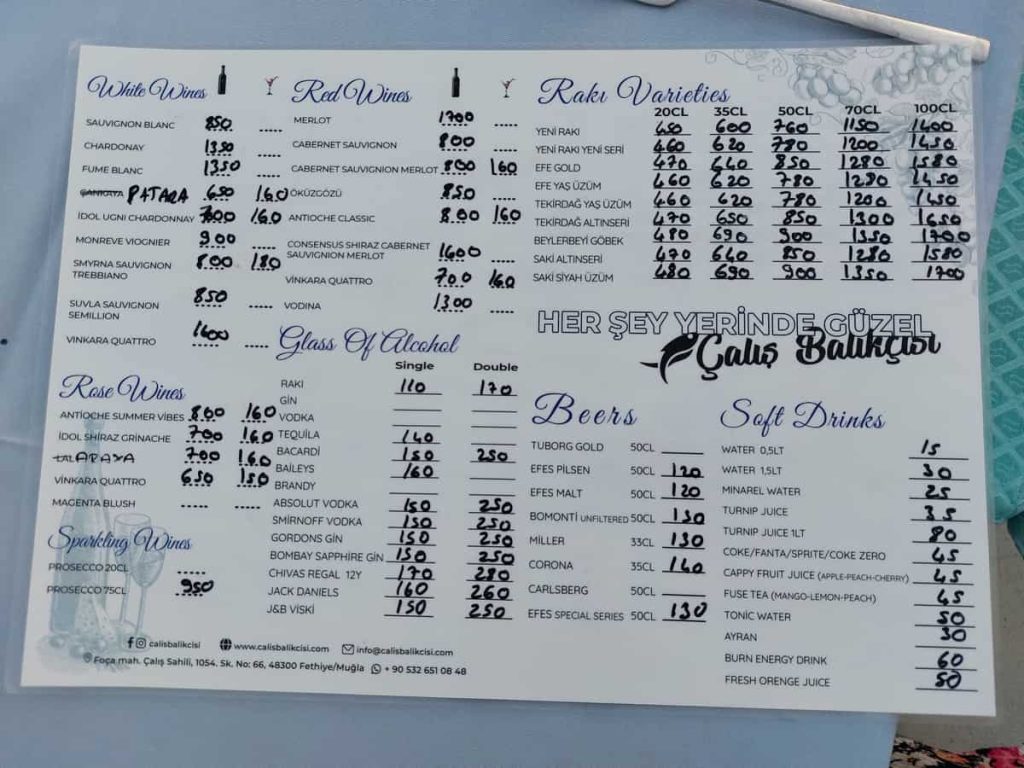 White Wines
SAUVIGNON BLANC 850 .....
CHARDONAY 1350 .....
FUME BLANC 1350 .....
PATARA 650 160
İDOL UGNI CHARDONNAY 700 160
MONREVE VIOGNIER 900 .....
SMYRNA SAUVIGNON TREBBIANO 800 180
SUVLA SAUVIGNON SEMILLION 850 .....
VINKARA QUATTRO 1600 .....
Rose Wines
ANTİOCHE SUMMER VİBES 800 160
İDOL SHİRAZ GRİNACHE 700 160
LAL APAYA 700 160
VİNKARA QUATTRO 650 150
MAGENTA BLUSH ..... .....
Sparkling Wines
PROSECCO 20CL .....
PROSECCO 75CL 950
Red Wines
MERLOT 1700 .....
CABERNET SAUVIGNON 800 .....
CABERNET SAUVIGNON MERLOT 800 160
ÖKÜZGÖZÜ 850 .....
ANTIOCHE CLASSIC 800 160
CONSENSUS SHIRAZ CABERNET SAUVIGNION MERLOT 1600 .....
VİNKARA QUATTRO 700 160
VODINA 1300 .....
Glass Of Alcohol
Single Double
RAKI 110 170
GİN
VODKA
TEQUİLA 140
BACARDİ 150 250
BAİLEYS 160
BRANDY
ABSOLUT VODKA 150 250
SMİRNOFF VODKA 150 250
GORDONS GİN 150 250
BOMBAY SAPPHİRE GİN 150 250
CHIVAS REGAL 12Y 170 280
JACK DANIELS 160 260
J&B VİSKİ 150 250
Rakı Varieties
20CL 35CL 50CL 70CL 100CL
YENİ RAKI 450 600 760 1150 1400
YENİ RAKI YENİ SERİ 460 620 780 1200 1450
EFE GOLD 470 640 850 1280 1580
EFE YAŞ ÜZÜM 460 620 780 1280 1450
TEKİRDAĞ YAŞ ÜZÜM 460 620 780 1200 1450
TEKİRDAĞ ALTINSERİ 470 650 850 1300 1650
BEYLERBEYİ GÖBEK 480 690 900 1350 1700
SAKİ ALTINSERİ 470 640 850 1280 1580
SAKİ SİYAH ÜZÜM 480 690 900 1350 1700
HER ŞEY YERİNDE GÜZEL
Çalış Balıkçısı
Beers
TUBORG GOLD 50CL
EFES PİLSEN 50CL 120
EFES MALT 50CL 120
BOMONTİ UNFILTERED 50CL 130
MİLLER 33CL 130
CORONA 35CL 140
CARLSBERG 50CL
EFES SPECIAL SERIES 50CL 130
Soft Drinks
WATER 0,5LT 15
WATER 1,5LT 30
MINAREL WATER 25
TURNIP JUICE 35
TURNIP JUICE 1LT 80
COKE/FANTA/SPRITE/COKE ZERO 45
CAPPY FRUIT JUICE (APPLE-PEACH-CHERRY) 45
FUSE TEA (MANGO-LEMON-PEACH) 45
TONİC WATER 50
AYRAN 30
BURN ENERGY DRINK 60
FRESH ORENGE JUICE 50
calisbalikcisi www.calisbalikcisi.com info@calisbalikcisi.com
Foça mah. Çalış Sahili, 1054. Sk. No: 66, 48300 Fethiye/Muğla + 90 532 651 08 48